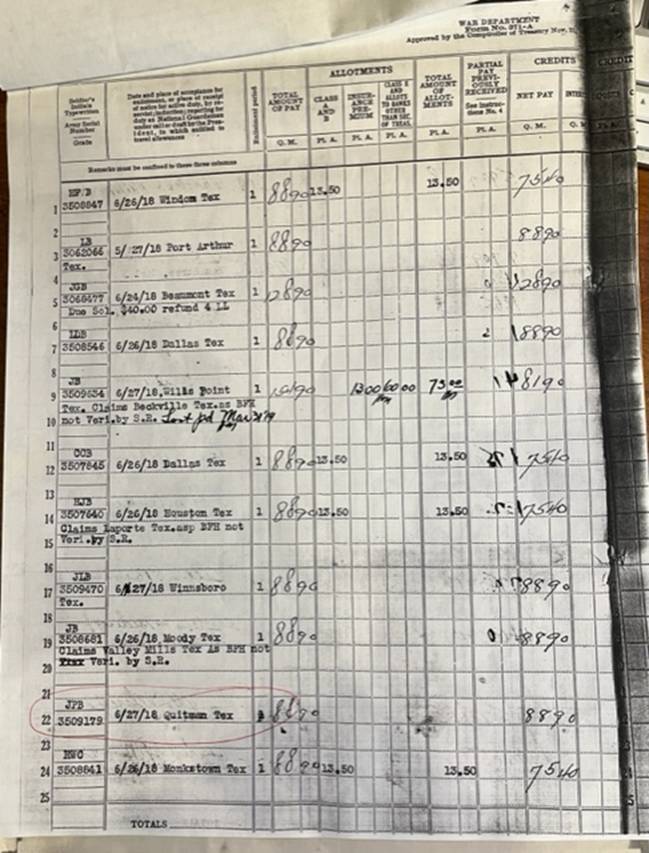 WAR DEPARTMENT
Form No. 371-A
Approved by the Comptroller of Treasury Nov.
ALLOTMENTS
CREDITS
CREDIT
Soldier's Initials Typewritten
Army Serial Number
Grade
Date and place of acceptance for enlistment, or place of receipt of notice for active duty, by reservist; induction; reporting for duty as National Guardsman under call or draft by the President, in which entitled to travel allowances
Enlistment period
TOTAL AMOUNT OF PAY
CLASS A AND B
INSURANCE PREMIUM
TOTAL AMOUNT OF ALLOTMENTS
PARTIAL PAY PREVIOUSLY RECEIVED
See Instructions No. 4
NET PAY
Q. M. Pl. A. Pl. A. Pl. A. Pl. A. Pl. A. Q. M.
Remarks must be confined to these three columns
1 3508847 6/26/18 Windom Tex 1 8890 13.50 13.50 7540
2 LB
3 3062066 5/27/18 Port Arthur 1 8890 8890
Tex.
4 JGB
5 3068477 6/24/18 Beaumont Tex 1 12890 12890
Due Sol. $40.00 refund 4 LL
6 LDB
7 3508546 6/26/18 Dallas Tex 1 8890 8890
8 JB
9 3509534 6/27/18 Wills Point 1 1300 6000 73.00 8190
Tex. Claims Beckville Tex. as BFH
10 not Veri. by S.R. Last pd Mar 31/19
11 OCB
12 3507845 6/26/18 Dallas Tex 1 8890 13.50 13.50 7540
13 HJB
14 3507640 6/26/18 Houston Tex 1 8890 13.50 13.50 7540
Claims Laporte Tex. asp BFH not
15 Veri. by S.R.
16 JLB
17 3509470 6/27/18 Winnsboro 1 8890 8890
Tex.
18 JB
19 3508681 6/26/18 Moody Tex 1 8890 8890
Claims Valley Mills Tex As BFH not
20 Veri. by S.R.
21 JPB
22 3509179 6/27/18 Quitman Tex 8890 8890
23
24 3508841 6/26/18 Monkstown Tex 1 8890 13.50 13.50 7540
25
TOTALS